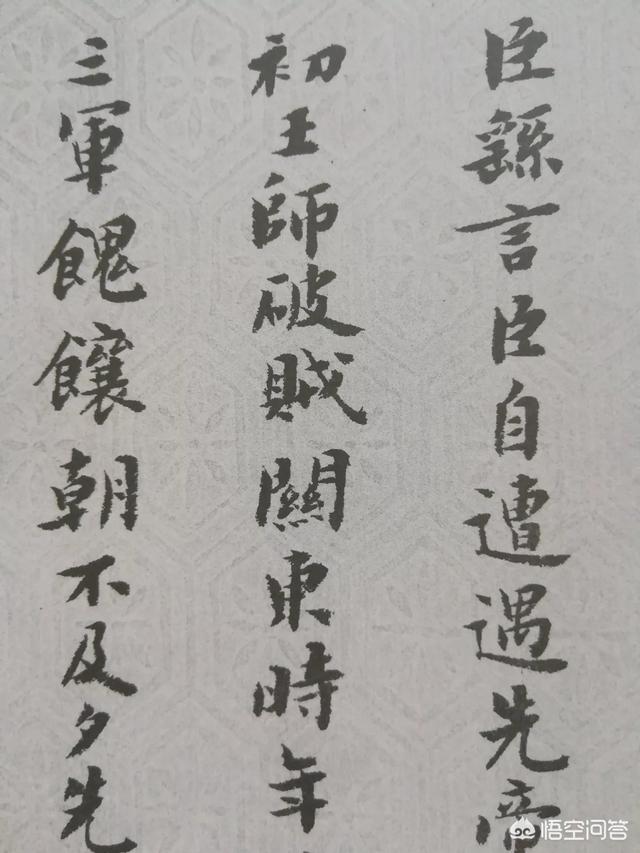 臣繇言臣自遭遇先帝
初王師破賊關東時年
三軍餽饟朝不及夕先
悟空问答